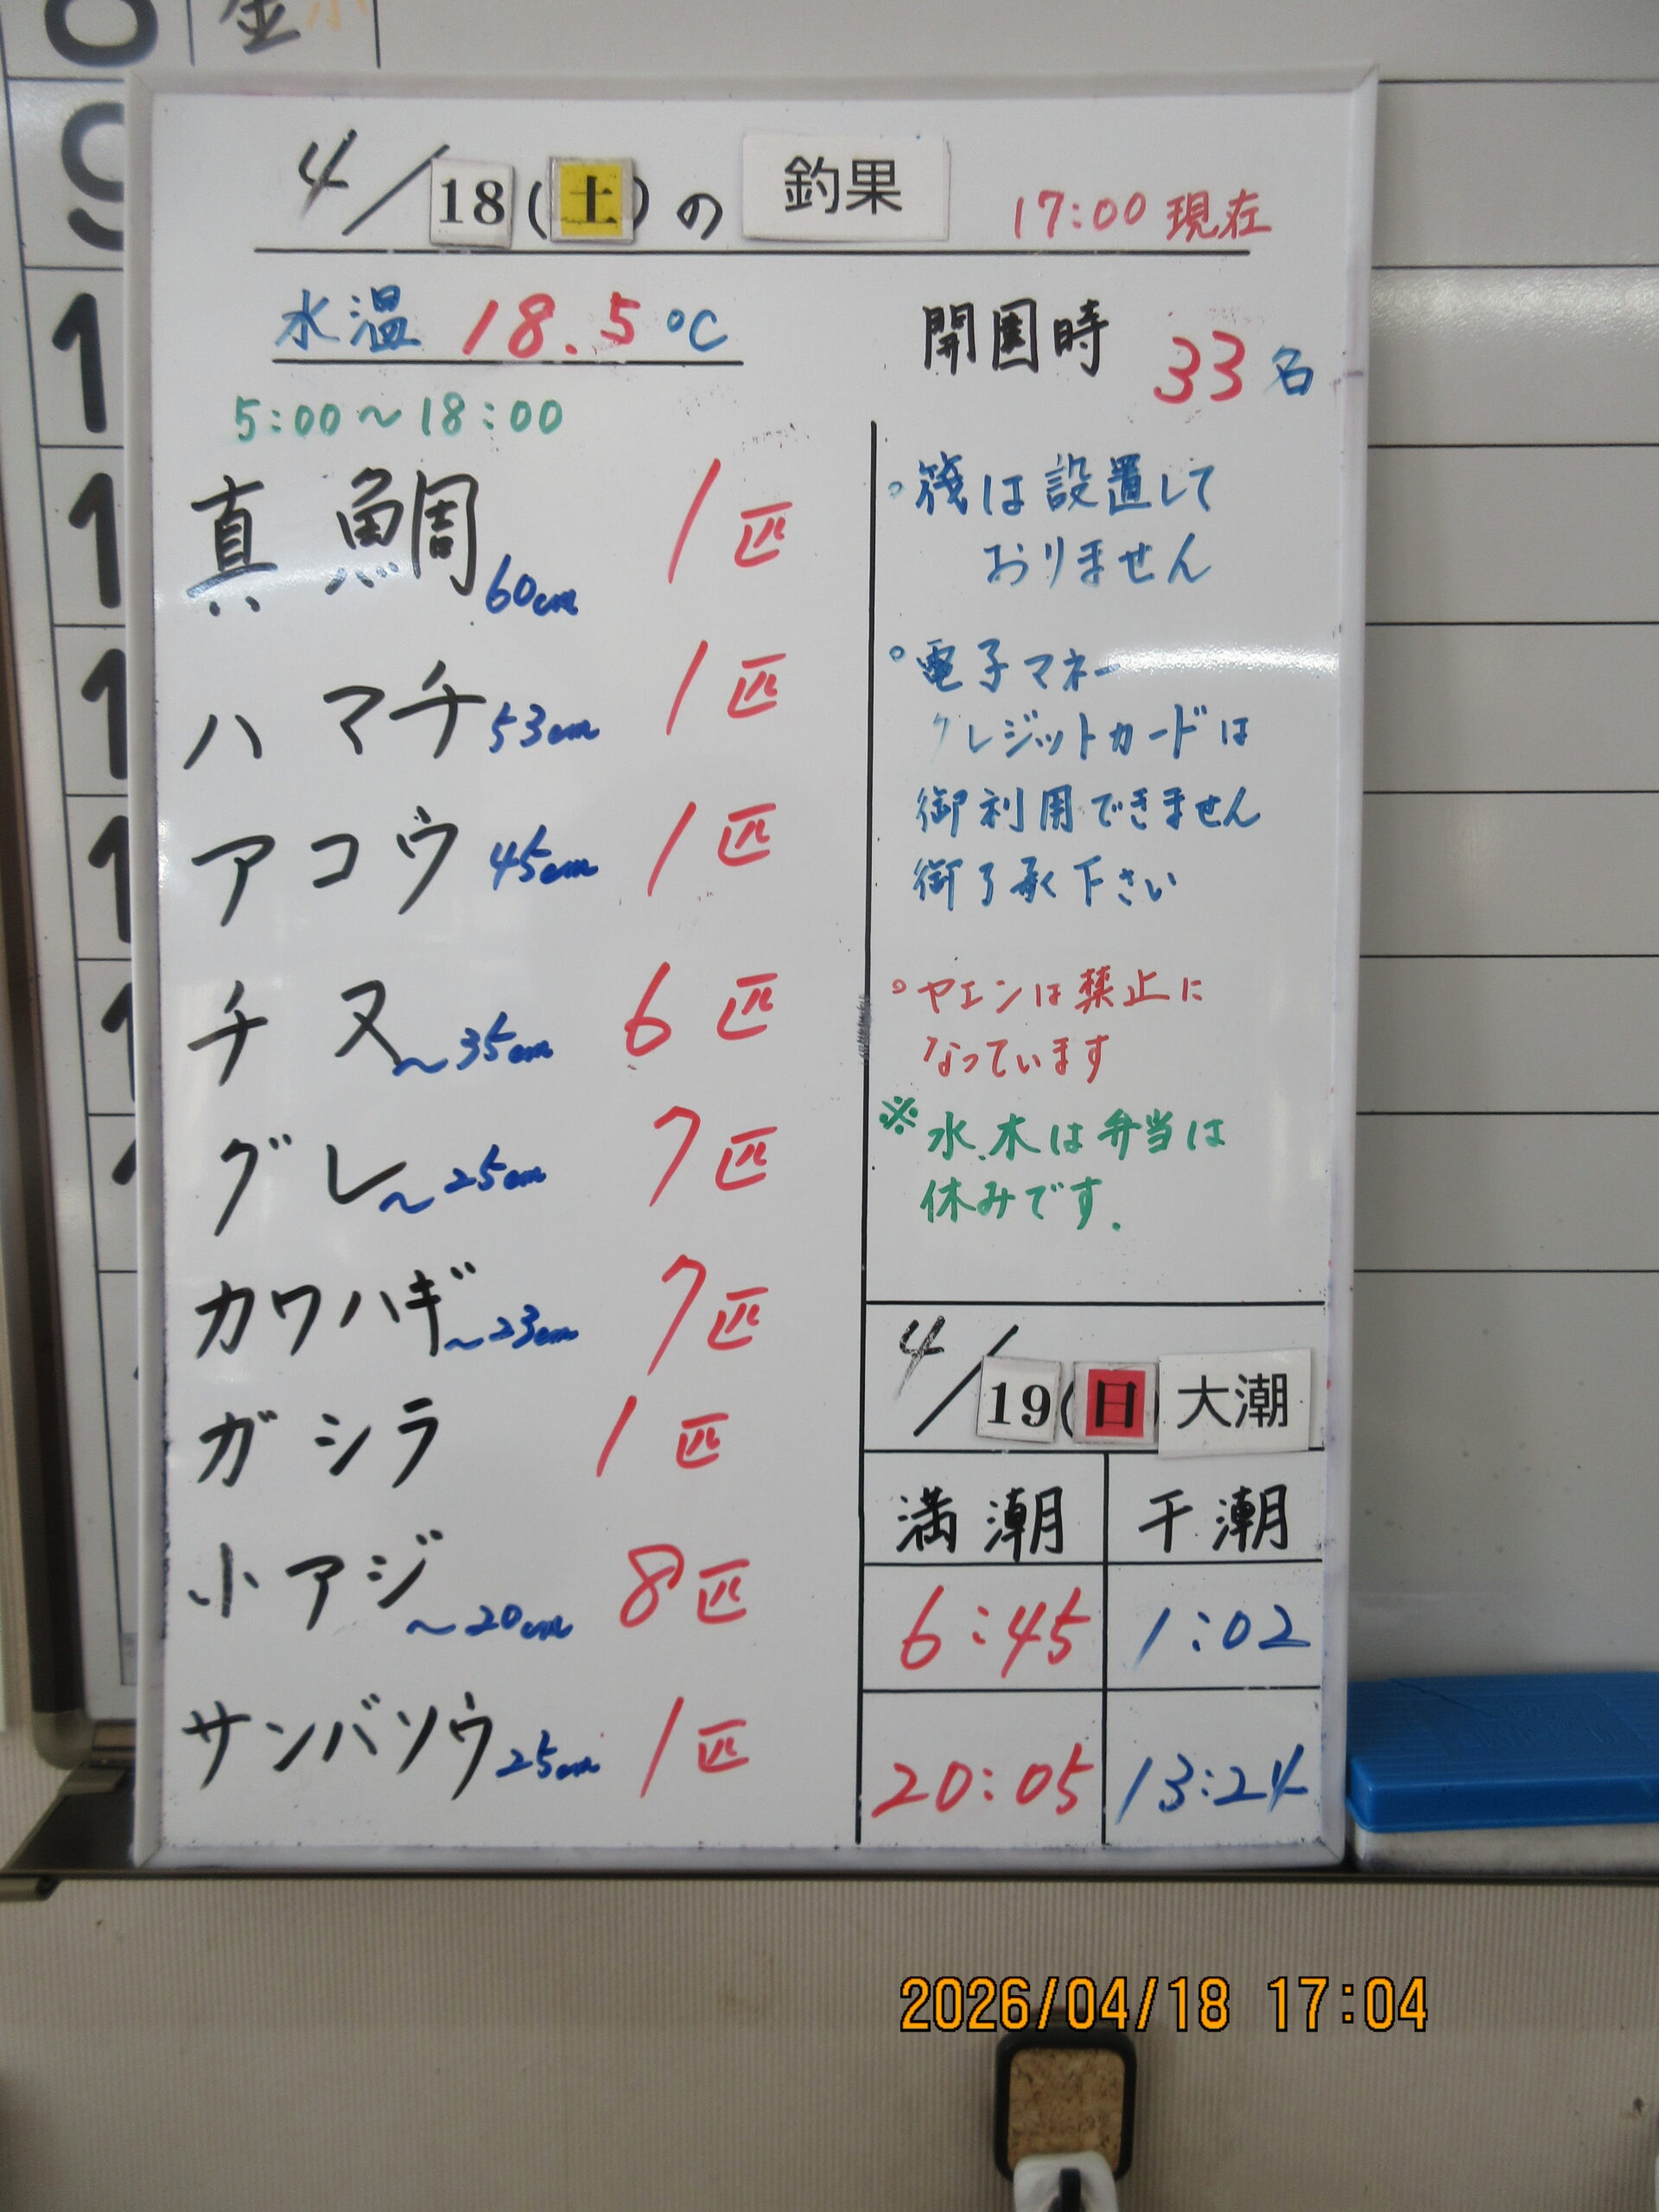 金
4/18(土)の釣果 17:00 現在
水温 18.5℃
開園時 33名
5:00～18:00
真鯛 60cm 1匹
ハマチ 53cm 1匹
アコウ 45cm 1匹
チヌ ～35cm 6匹
グレ ～25cm 7匹
カワハギ ～23cm 7匹
ガシラ 1匹
小アジ ～20cm 8匹
サンバソウ 25cm 1匹
。筏は設置して
おりません
。電子マネー
クレジットカードは
御利用できません
御了承下さい
。ヤエンは禁止に
なっています
※水、木は弁当は
休みです.
4/19(日) 大潮
満潮 干潮
6:45 1:02
20:05 13:24
2026/04/18 17:04